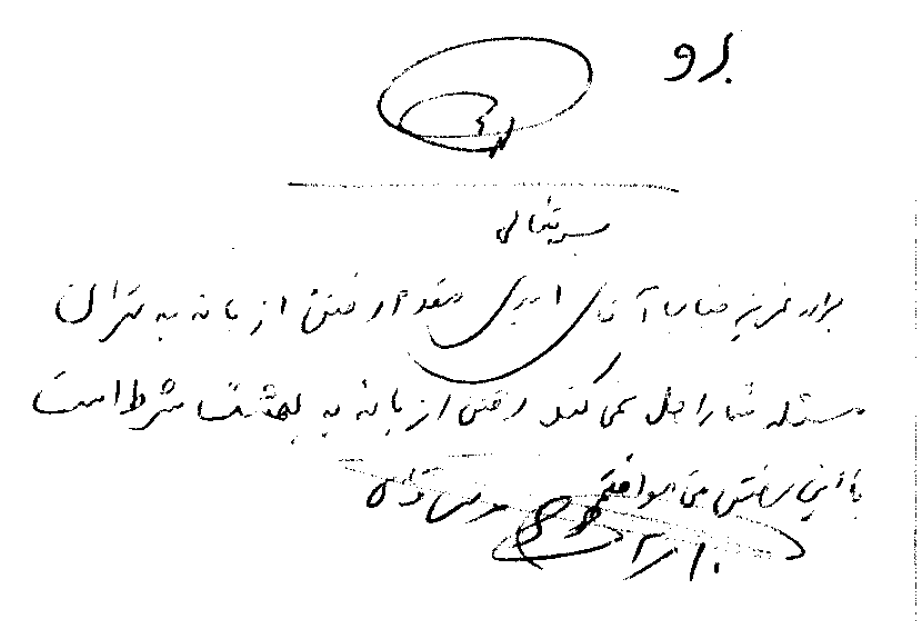 برو
بسمه تعالی
برادر عزیز جناب آقای امیری مقدم رفتن از بانه به تهران
مسئله شما را حل نمی کند رفتن از بانه به بهشت شرط است
با این رفتن من موافقم